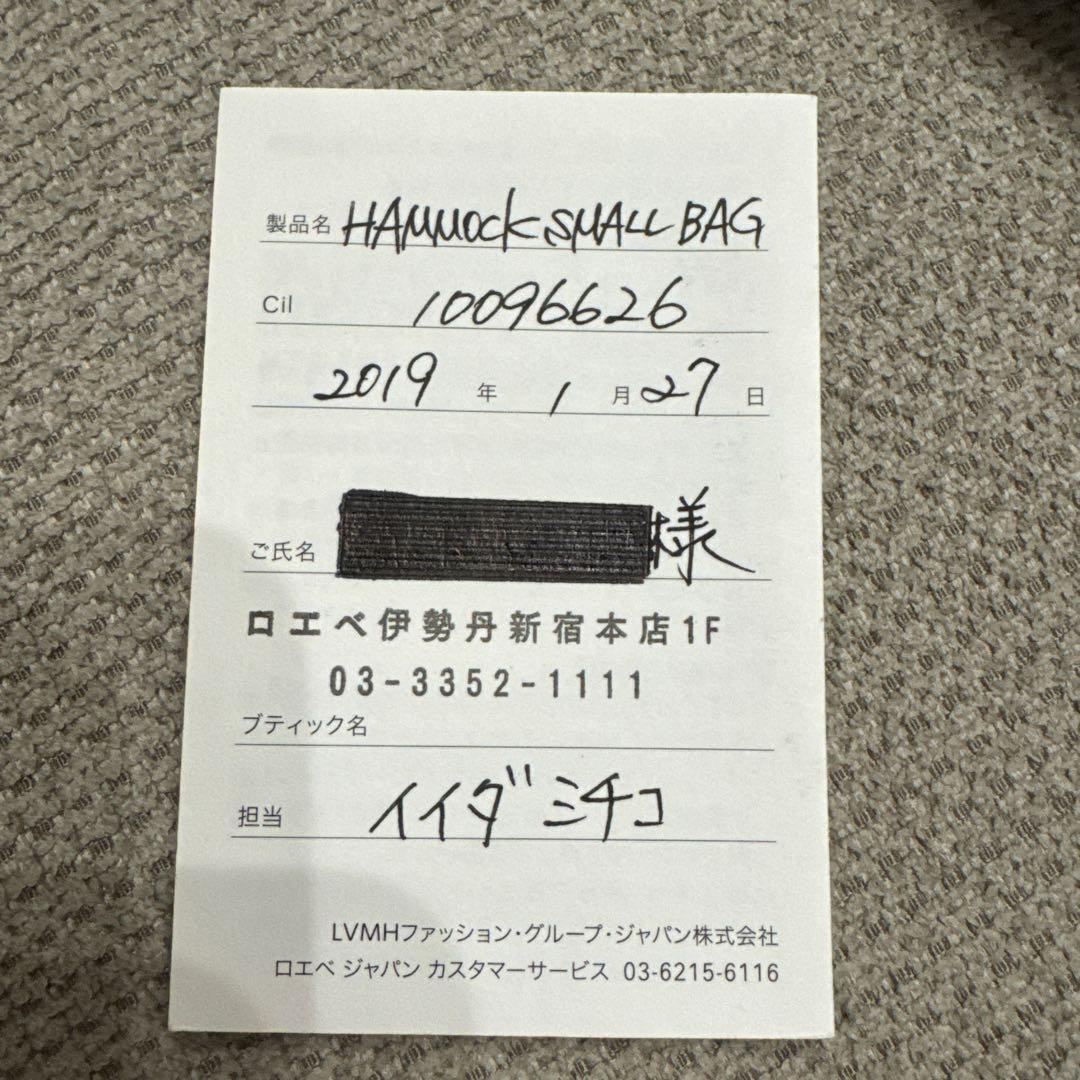 製品名 HAMMOCK SMALL BAG
Cil 10096626
2019 年 1 月 27 日
ご氏名 様
ロエベ伊勢丹新宿本店1F
03-3352-1111
ブティック名
担当 イイダ ミチコ
LVMHファッション・グループ・ジャパン株式会社
ロエベ ジャパン カスタマーサービス 03-6215-6116